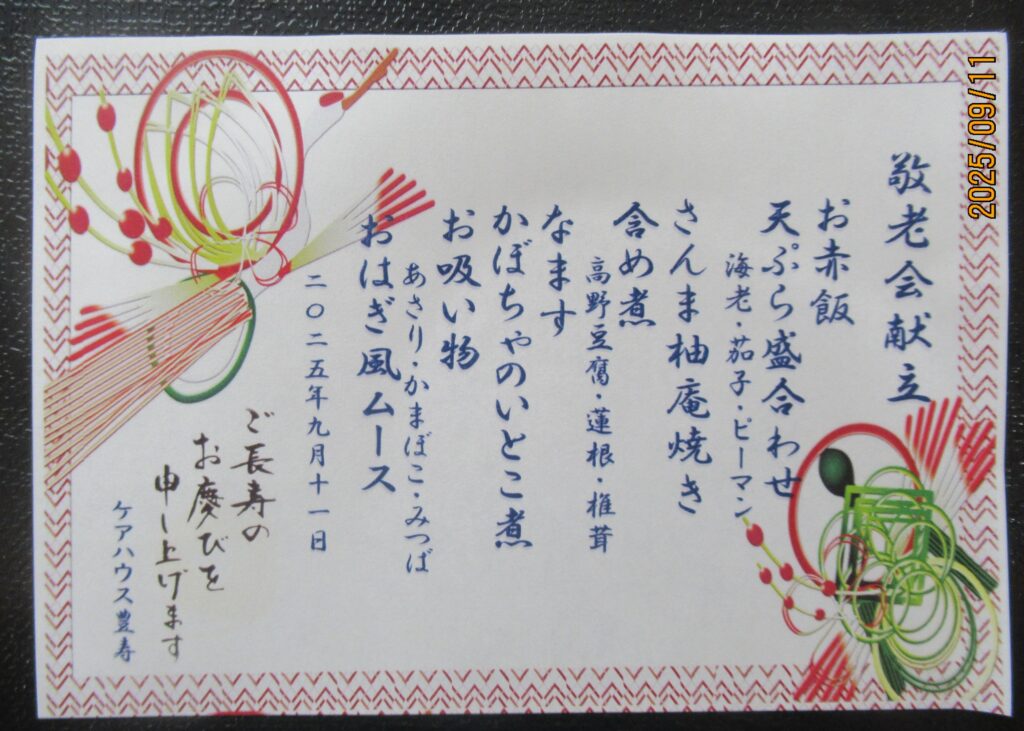 敬老会献立
お赤飯
天ぷら盛合わせ
海老・茄子・ピーマン
さんま柚庵焼き
含め煮
高野豆腐・蓮根・椎茸
なます
かぼちゃのいとこ煮
お吸い物
あさり・かまぼこ・みつば
おはぎ風ムース
二〇二五年九月十一日
ご長寿の
お慶びを
申し上げます
ケアハウス豊寿
2025/09/11